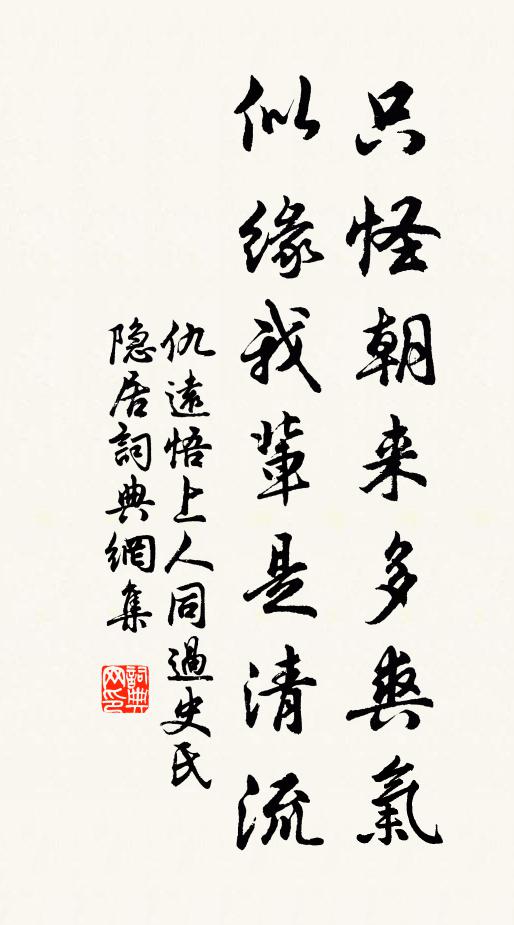 只怪朝来多爽氣
似緣我輩是清流
仇遠悟上人同過史氏
隐居詞典網集
詞典
网印